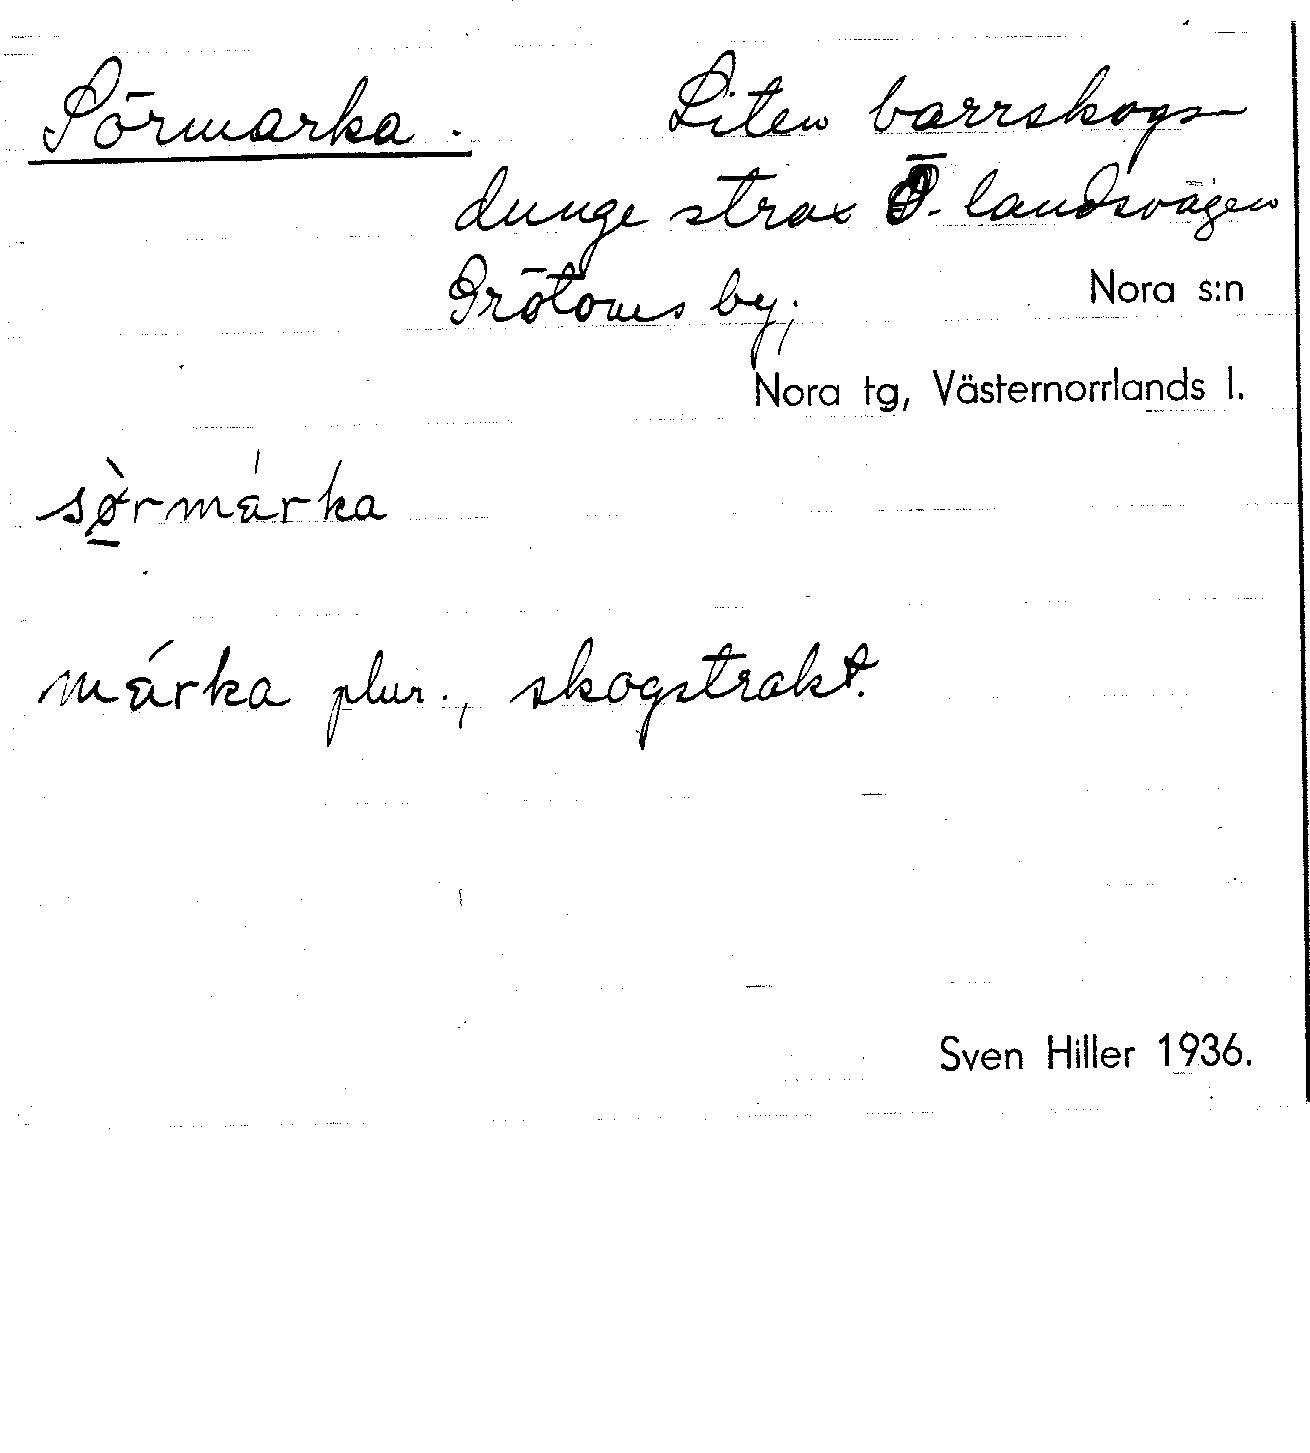 Sörmarka. Liten barrskogs-
dunge strax Ö. landsvägen
Grötoms by; Nora s:n
Nora tg, Västernorrlands l.
sø̱̀rmárka
márka plur., skogstrakt.
Sven Hiller 1936.